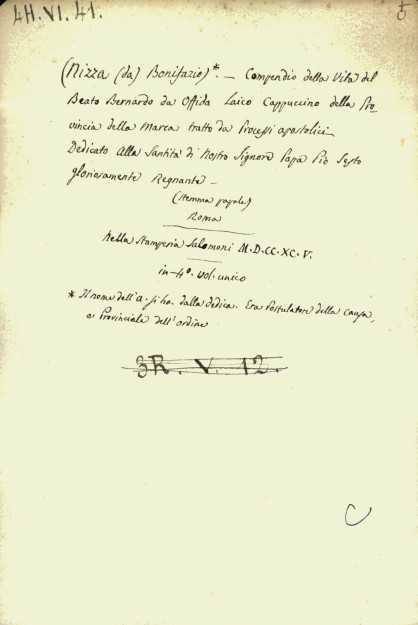 4H.VI.41.
(Nizza (da) Bonifazio)*. — Compendio della Vita del
Beato Bernardo da Offida Laico Cappuccino della Pro-
vincia della Marca tratto da Processi apostolici —
Dedicato alla Santità di Nostro Signore Papa Pio Sesto
gloriosamente Regnante —
(stemma papale)
Roma
Nella Stamperia Salomoni M.D.CC.XC.V.
in-4°. vol. unico
* Il nome dell'a. si ha dalla dedica. Era Postulatore della causa,
e Provinciale dell'ordine
3R. V. 12.
C